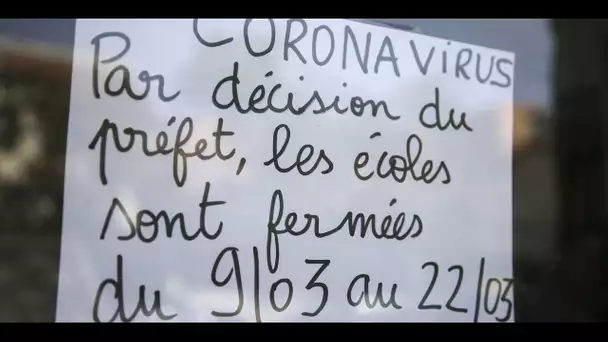 CORONAVIRUS
Par décision du
préfet, les écoles
sont fermées
du 9/03 au 22/03